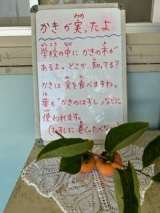 かきが実ったよ
学校の中にかきの木が
あるよ。どこか、知ってる？
かきは実を食べますね。
葉も「かきのはずし」などに
使われます。